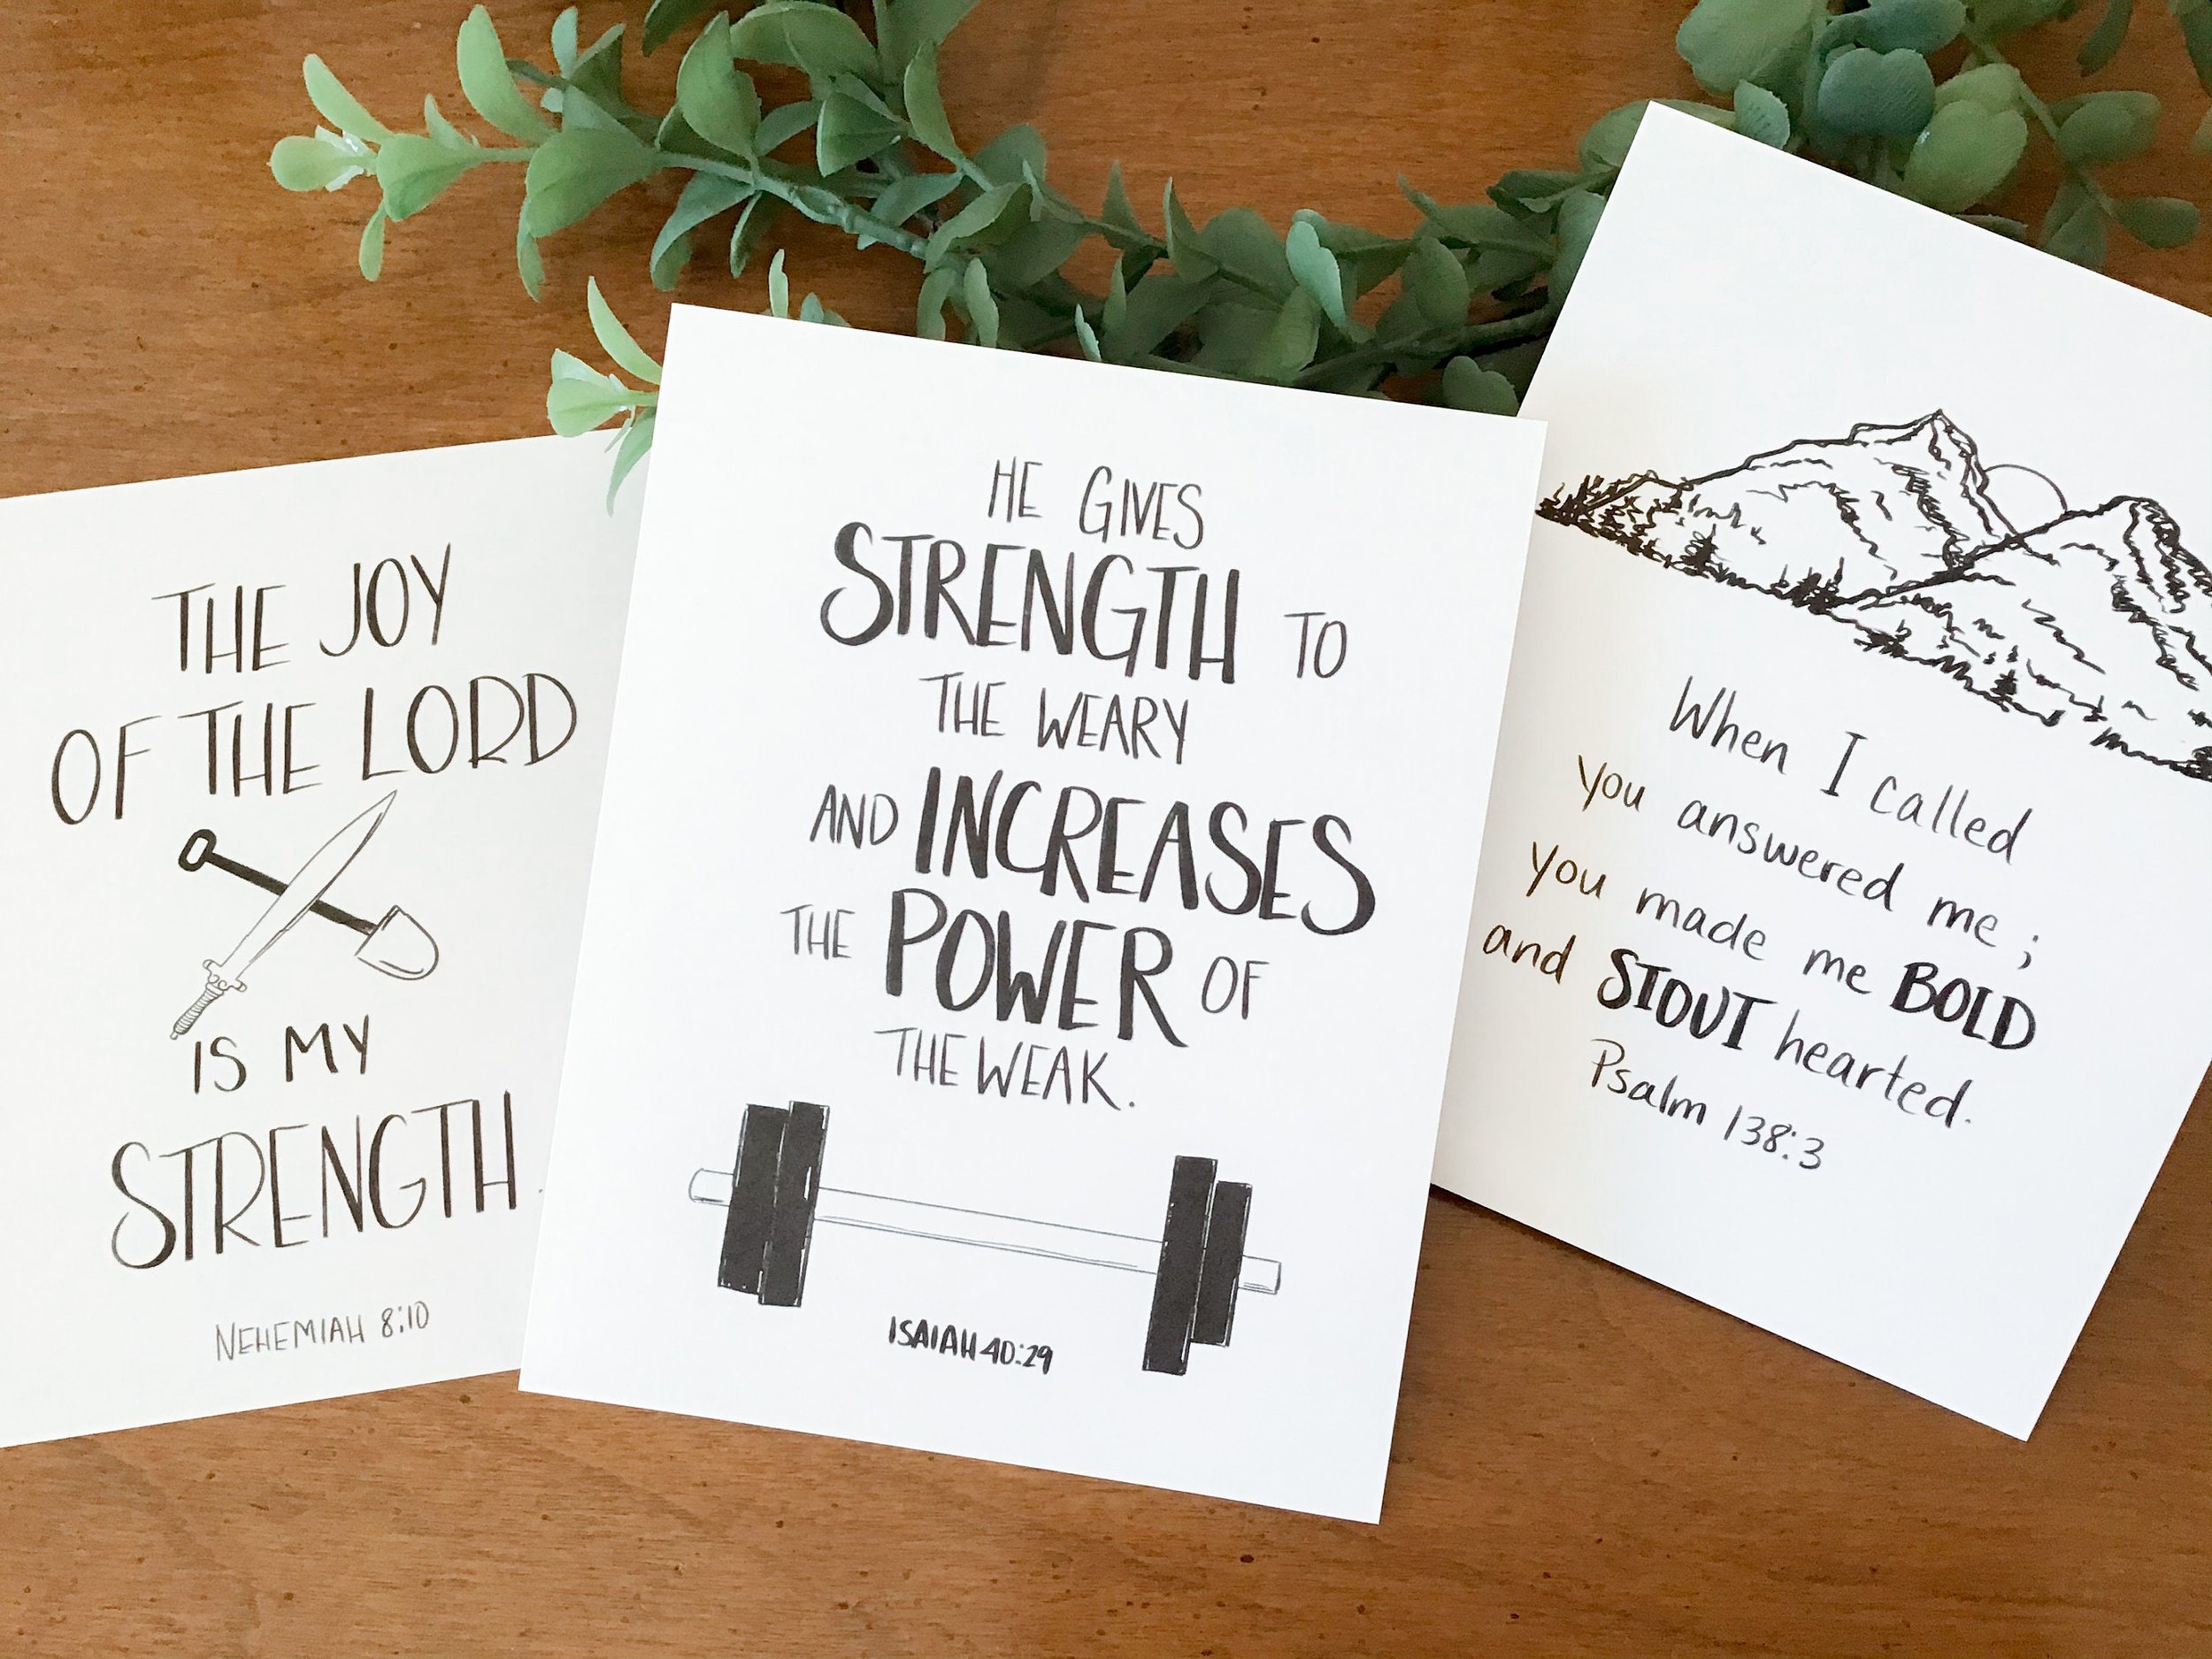 THE JOY
OF THE LORD
IS MY
STRENGTH.
NEHEMIAH 8:10
HE GIVES
STRENGTH TO
THE WEARY
AND INCREASES
THE POWER OF
THE WEAK.
ISAIAH 40:29
When I called
you answered me;
you made me BOLD
and STOUT hearted.
Psalm 138:3